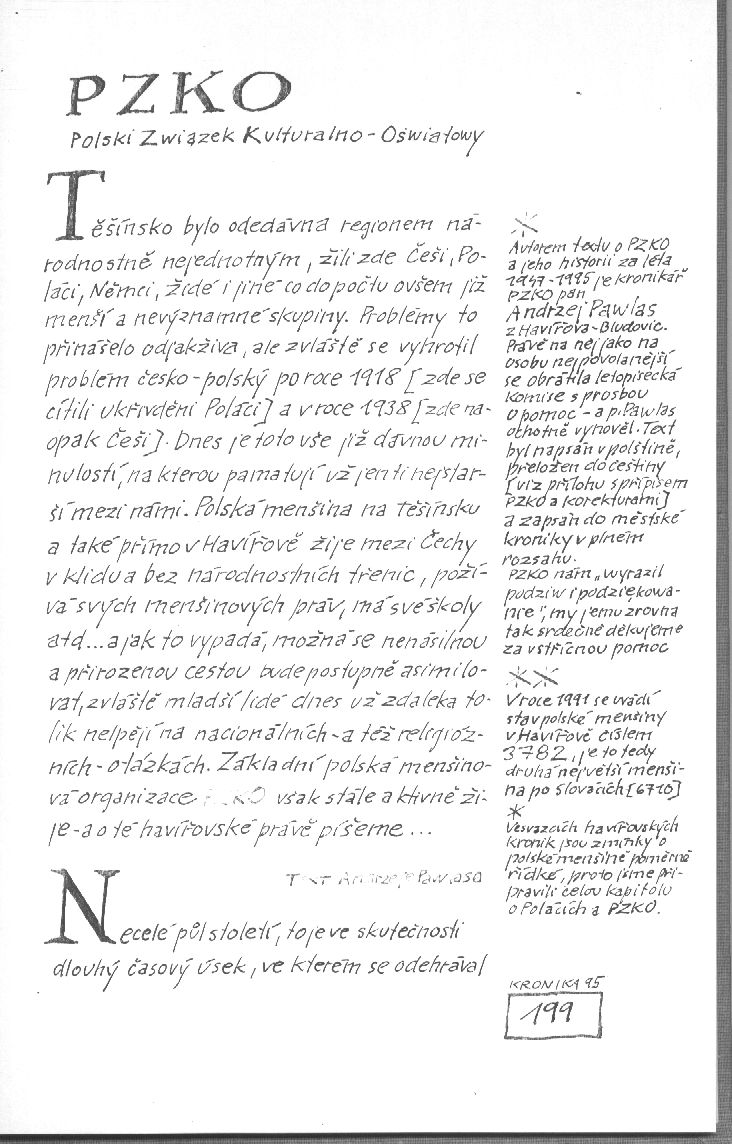 PZKO
Polski Związek Kulturalno - Oświatowy
Těšínsko bylo odedávna regionem ná-
rodnostně nejednotným, žili zde Češi, Po-
láci, Němci, Židé i jiné co do počtu ovšem již
menší a nevýznamné skupiny. Problémy to
přinášelo odjakživa, ale zvláště se vyhrotil
problém česko-polský po roce 1918 [zde se
cítili ukřivdění Poláci] a v roce 1938 [zde na-
opak Češi]. Dnes je toto vše již dávnou mi-
nulostí, na kterou pamatují už jen ti nejstar-
ší mezi námi. Polská menšina na Těšínsku
a také přímo v Havířově žije mezi Čechy
v klidu a bez národnostních třenic, poží-
vá svých menšinových práv, má své školy
atd... a jak to vypadá, možná se nenásilnou
a přirozenou cestou bude postupně asimilo-
vat, zvláště mladší lidé dnes už zdaleka to-
lik nelpějí na nacionálních - a též religióz-
ních - otázkách. Základní polská menšino-
vá organizace PZKO však stále aktivně ži-
je - a o té havířovské právě píšeme ...
Text Andrzeje Pawlasa
Necelé půl století, to je ve skutečnosti
dlouhý časový úsek, ve kterém se odehrával
*
Autorem textu o PZKO
a jeho historii za léta
1947-1995 je kronikář
PZKO pan
Andrzej Pawlas
z Havířova-Bludovic.
Právě na něj jako na
osobu nejpovolanější
se obrátila letopisecká
komise s prosbou
o pomoc - a p. Pawlas
ochotně vyhověl. Text
byl napsán v polštině,
přeložen do češtiny
[viz přílohu s přípisem
PZKO a korekturami]
a zapsán do městské
kroniky v plném
rozsahu.
PZKO nám „wyrazil
podziw i podziękowa-
nie", my jemu zrovna
tak srdečně děkujeme
za vstřícnou pomoc
**
V roce 1991 se uvádí
stav polské menšiny
v Havířově číslem
3782, je to tedy
druhá největší menši-
na po slovácích [6710]
*
Ve svazcích havířovských
kronik jsou zmínky o
polské menšině poměrně
řídké, proto jsme při-
pravili celou kapitolu
o Polácích a PZKO.
KRONIKA 95
199